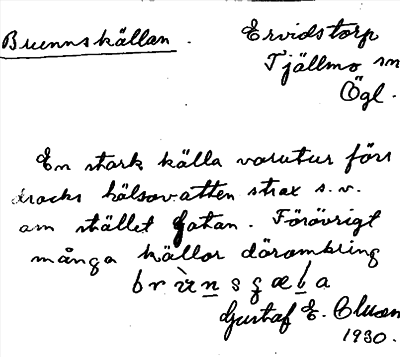 Brunnskällan.
Ervidstorp
Tjällmo sn
Ögl.
En stark källa varutur förr
dracks hälsovatten strax s.v.
om stället Gatan. Förövrigt
många källor däromkring
Gustaf E. Olsson
1930.